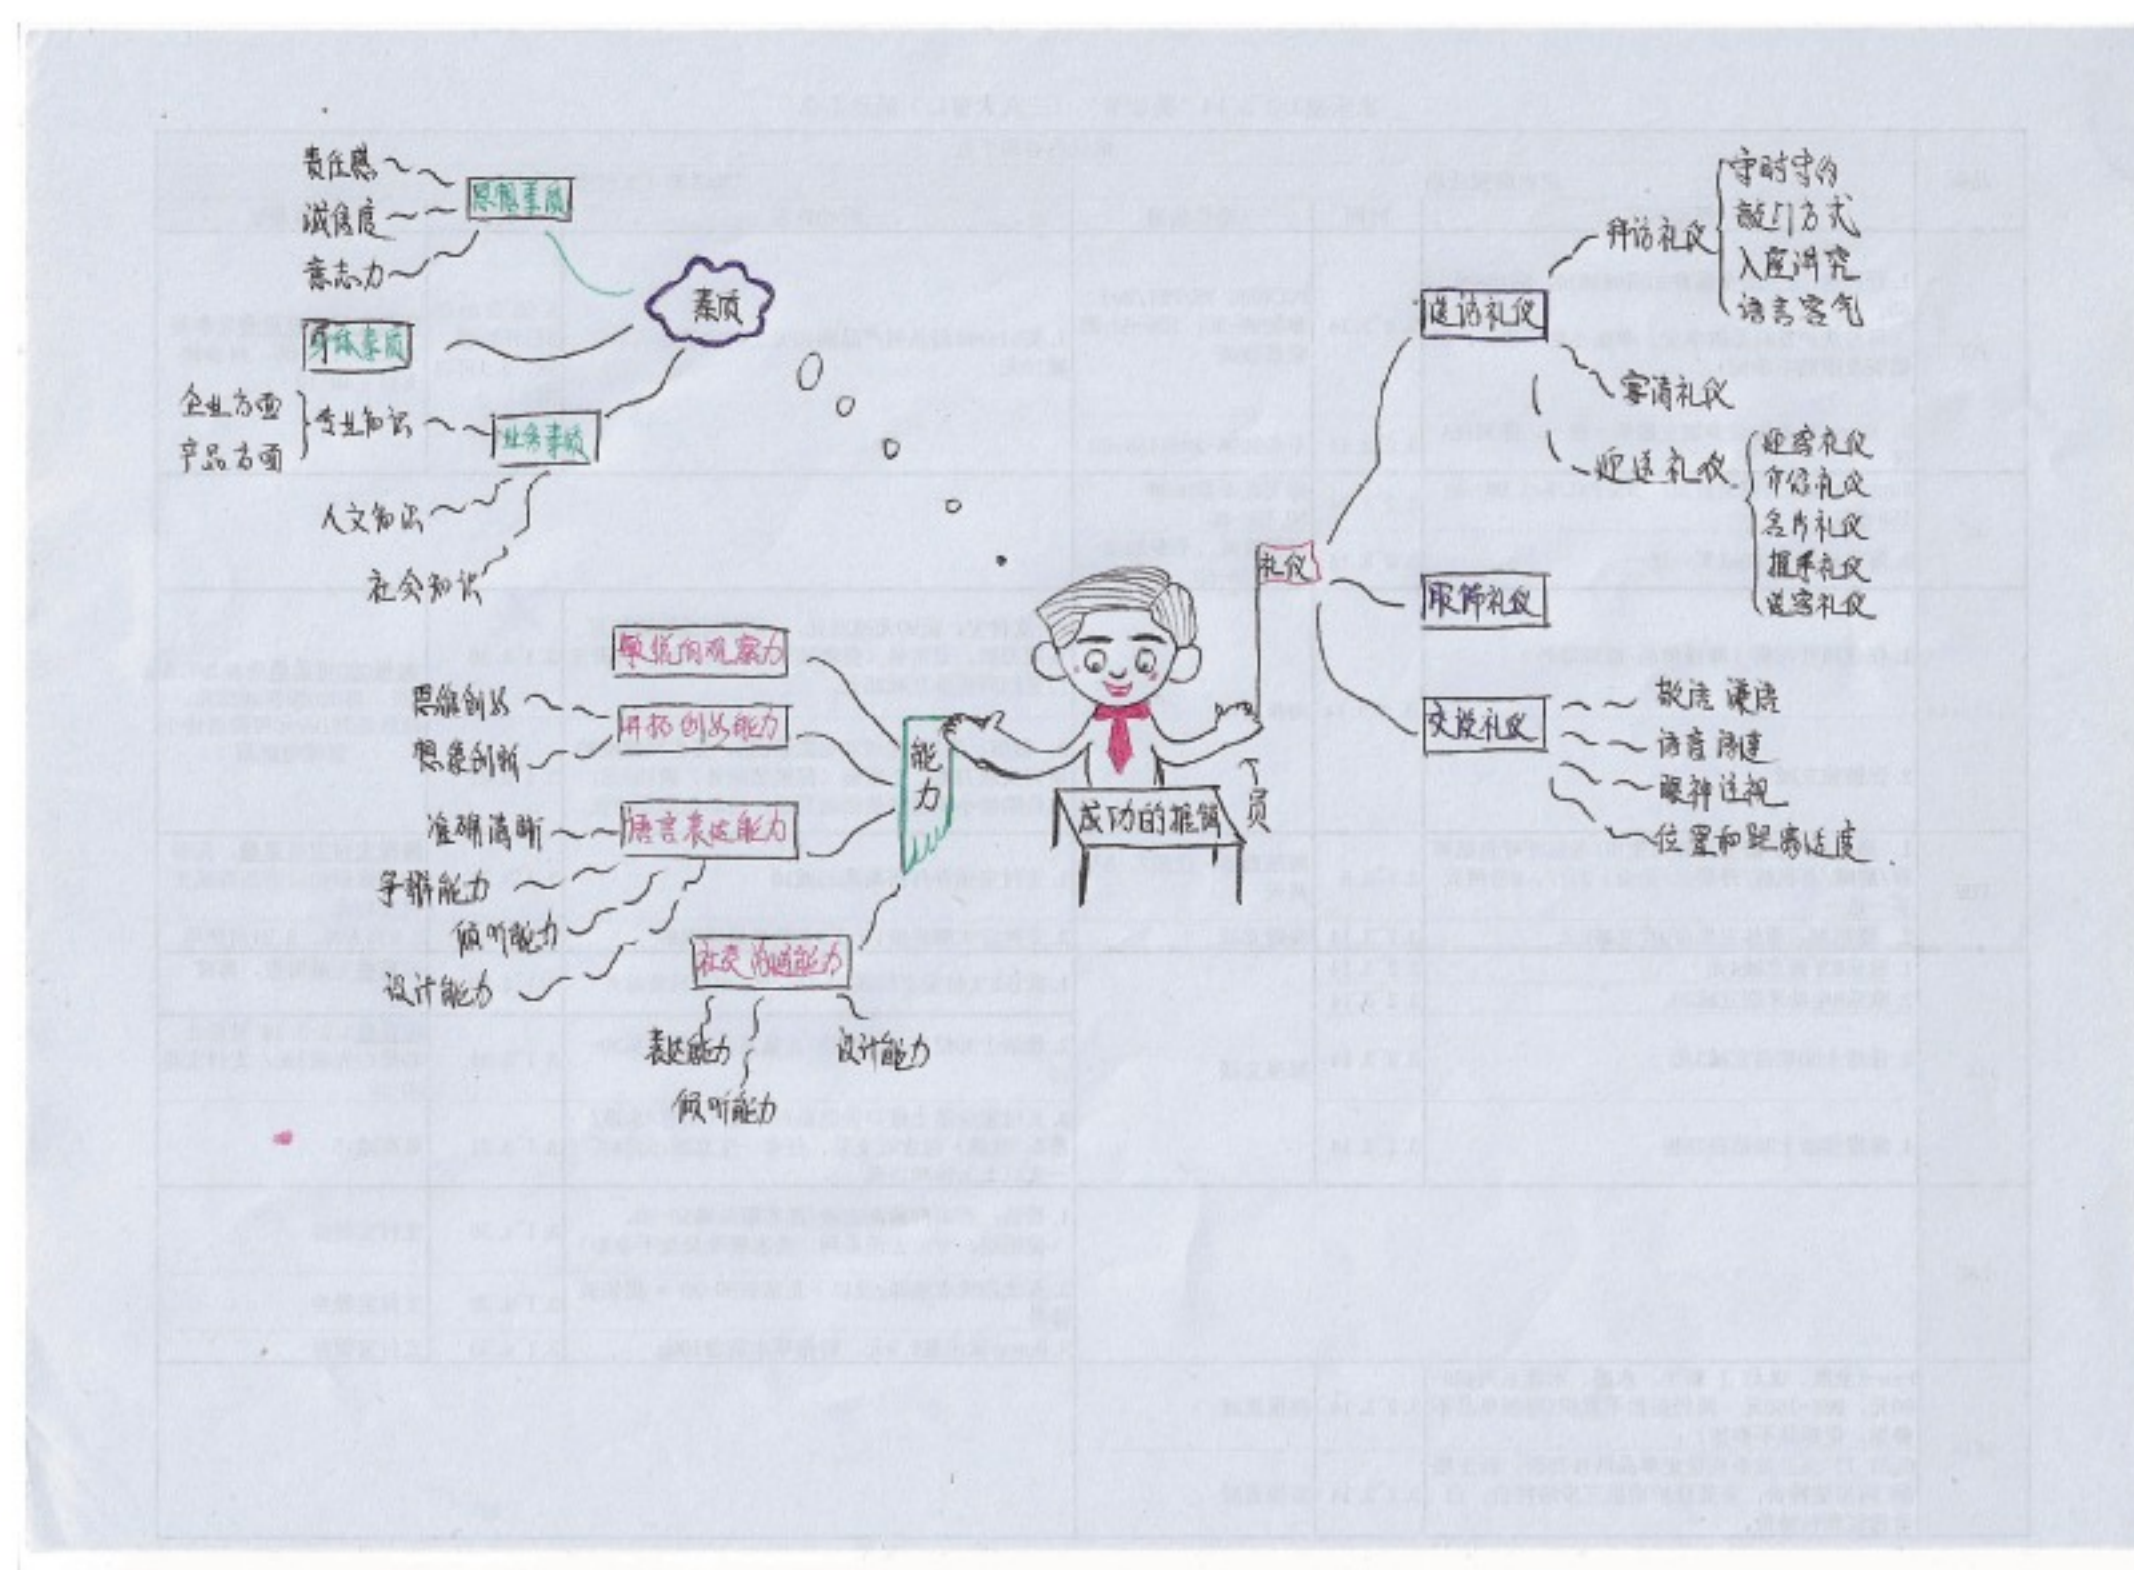 责任感
诚信度
意志力
思想素质
素质
身体素质
企业方面
产品方面
专业知识
业务素质
人文知识
社会知识
敏锐的观察力
思维创新
想象创新
开拓创新能力
能力
准确清晰
争辩能力
倾听能力
设计能力
语言表达能力
社交沟通能力
表达能力
倾听能力
设计能力
成功的推销
员
礼仪
拜访礼仪
守时守约
敲门方式
入座讲究
语言客气
宴请礼仪
迎送礼仪
迎客礼仪
介绍礼仪
名片礼仪
握手礼仪
送客礼仪
服饰礼仪
交谈礼仪
敬语 谦语
语言
眼神注视
位置和距离适度